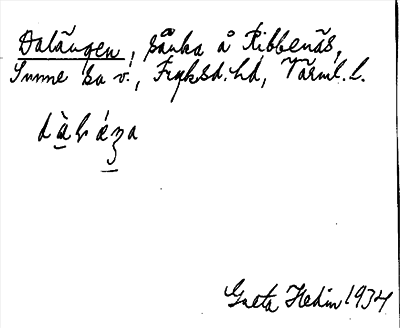 Dalängen, sänka å Ribbenäs,
Sunne sn v., Fryksd. hd, Värml. l.
Greta Hedin 1934